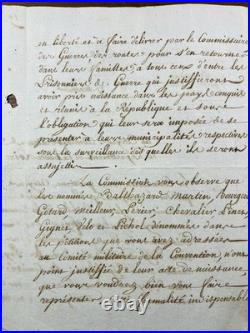 en liberté et a faire délivrer par le Commissaire
des Guerres des routes pour s'en retourner
dans leurs familles à tous ceux d'entre les
Prisonniers de Guerre qui justifieront
avoir pris naissance dans les pays conquis
et réunis à la République et sous
l'obligation qui leur sera imposée de se
présenter à leurs municipalités respectives
sous la surveillance desquelles ils seront
assujettis.
La Commission vous observe que
les nommés Balthazard Martin
Gerard Meilleur Chevalier
Gignet et Pichol dénommés dans
les pétitions que vous avez adressées
au Comité militaire de la Convention, n'ont
point justifié de leur acte de naissance,
que vous voudrez bien vous faire
représenter formalité indispensable